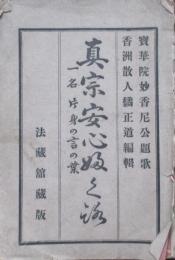 寶華院妙香尼公題歌
香洲散人橘正道編輯
真宗安心婦く路
一名片身の言の葉
法藏舘藏版